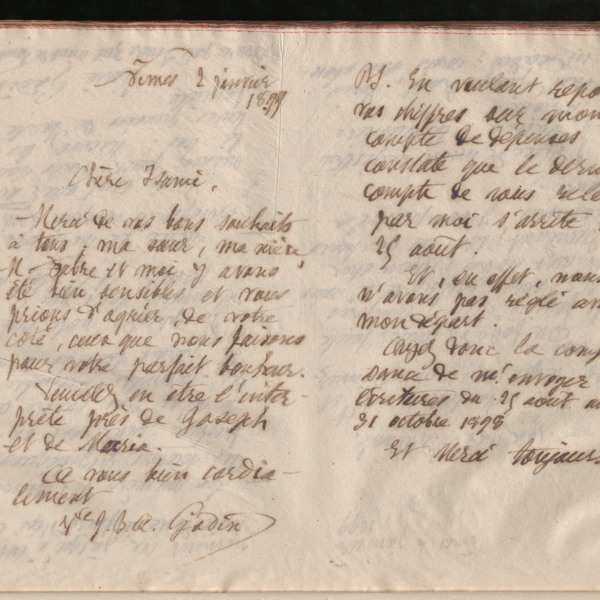 Nîmes 2 janvier
1899
Chère Isanie,
Merci de vos bons souhaits
à tous, ma sœur, ma nièce
M. Fabre et moi y avons
été bien sensibles et vous
prions d'agréer, de notre
côté, ceux que nous faisons
pour votre parfait bonheur.
Veuillez en être l'inter-
prète près de Joseph
et de Maria.
A vous bien cordia-
lement
Vve J. B. A. Godin
PS. En voulant repo
vos chiffres sur mon
compte de dépenses
constate que le dern
compte de vous rele
par moi s'arrête
25 août.
Et, en effet, nous
n'avons pas réglé av
mon départ.
Ayez donc la comp
sance de m'envoyer
écritures du 25 août au
31 octobre 1898
Et Merci toujours